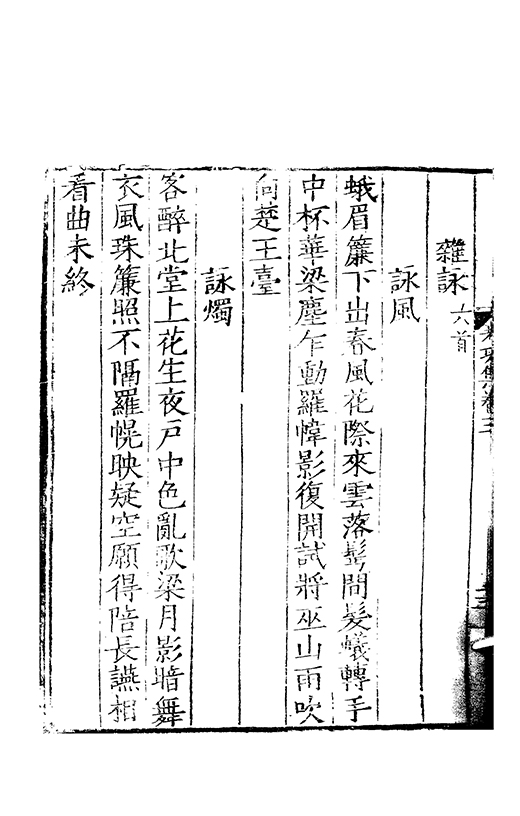 雜詠六首
詠風
蛾眉簾下出春風花際來雲落髩間髮蟻轉手
中杯華梁塵乍動羅幃影復開試將巫山雨吹
向楚王臺
詠燭
客醉北堂上花生夜戸中色亂歌梁月影暗舞
衣風珠簾照不隔羅幌映疑空願得陪長讌相
看曲未終